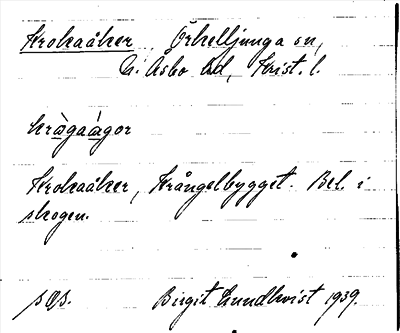 Krokaåker Örkelljunga sn,
N. Åsbo hd, Krist. l.
krògaágor
Krokaåker, Krångelbygget. Bel. i
skogen.
Birgit Lundkvist 1939.